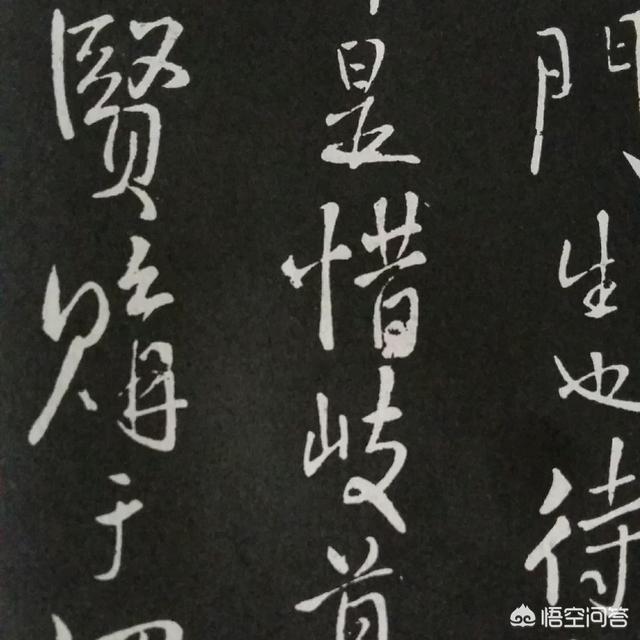 門生也待
是惜岐首
賢購于
悟空问答